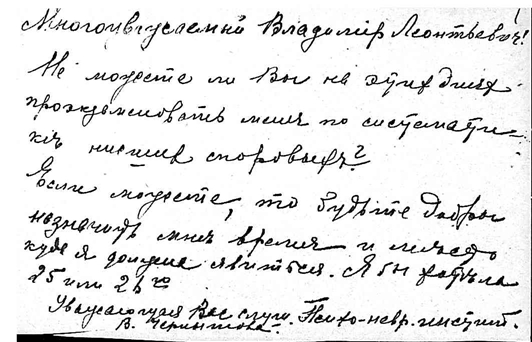 Многоуважаемый Владимир Леонтьевич!
Не можете ли Вы на этих днях
проэкзаменовать меня по системати-
кѣ низших споровых?
Если можете, то будьте добры
назначить мнѣ время и место
куда я должна явиться. Я бы хотѣла
25 или 26го
Уважающая Вас слуш. Психо-невр. инстит.
В.